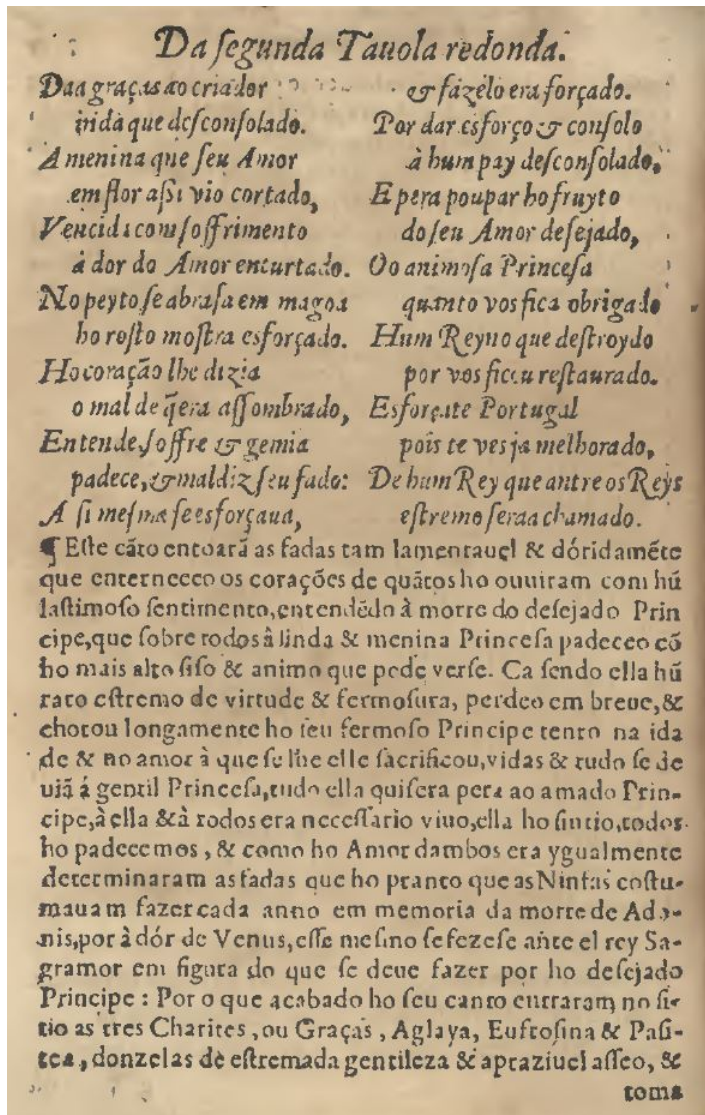 Da ſegunda Tauola redonda.
Daa graças ao criador
inda que deſconſolado.
A menina que ſeu Amor
em flor aſsi vio cortado,
Vencida com ſoffrimento
à dor do Amor encurtado.
No peyto ſe abraſa em magoa
ho roſto moſtra esforçado.
Ho coração lhe dizia
o mal de q̃ era aſſombrado,
Entende, ſoffre & gemia
padece, & maldiz ſeu fado:
A ſi meſma ſe esforçaua,
& fazélo era forçado.
Por dar esforço & conſolo
à hum pay deſconſolado,
E pera poupar ho fruyto
do ſeu Amor deſejado,
Oo animoſa Princeſa
quanto vos fica obrigado
Hum Reyno que deſtroydo
por vos ficou reſtaurado.
Esforçate Portugal
pois te ves ja melhorado,
De hum Rey que antre os Reys
eſtremo ſeraa chamado.
¶ Eſte cãto entoarã as fadas tam lamentauel & dóridamẽte
que enterneceo os corações de quãtos ho ouuiram com hũ
laſtimoſo ſentimento, entendẽdo à morte do deſejado Prin
cipe, que ſobre todos â linda & menina Princeſa padeceo cõ
ho mais alto ſiſo & animo que pede verſe. Ca ſendo ella hũ
raro eſtremo de virtude & fermoſura, perdeo em breue, &
chorou longamente ho ſeu fermoſo Principe tenro na ida
de & no amor à que ſe lhe elle ſacrificou, vidas & tudo ſe de
uiã á gentil Princeſa, tudo ella quiſera pera ao amado Prin-
cipe, à ella & à todos era neceſſario viuo, ella ho ſintio, todos
ho padecemos, & como ho Amor dambos era ygualmente
determinaram as fadas que ho pranto que as Ninfas coſtu-
mauam fazer cada anno em memoria da morte de Ado-
nis, por à dór de Venus, eſſe meſmo ſe fezeſe ante el rey Sa-
gramor em figura do que ſe deue fazer por ho deſejado
Principe: Por o que acabado ho ſeu canto entraram no ſi-
tio as tres Charites, ou Graças, Aglaya, Eufroſina & Paſi-
tea, donzelas de eſtremada gentileza & aprazíuel aſſeo, &
toma